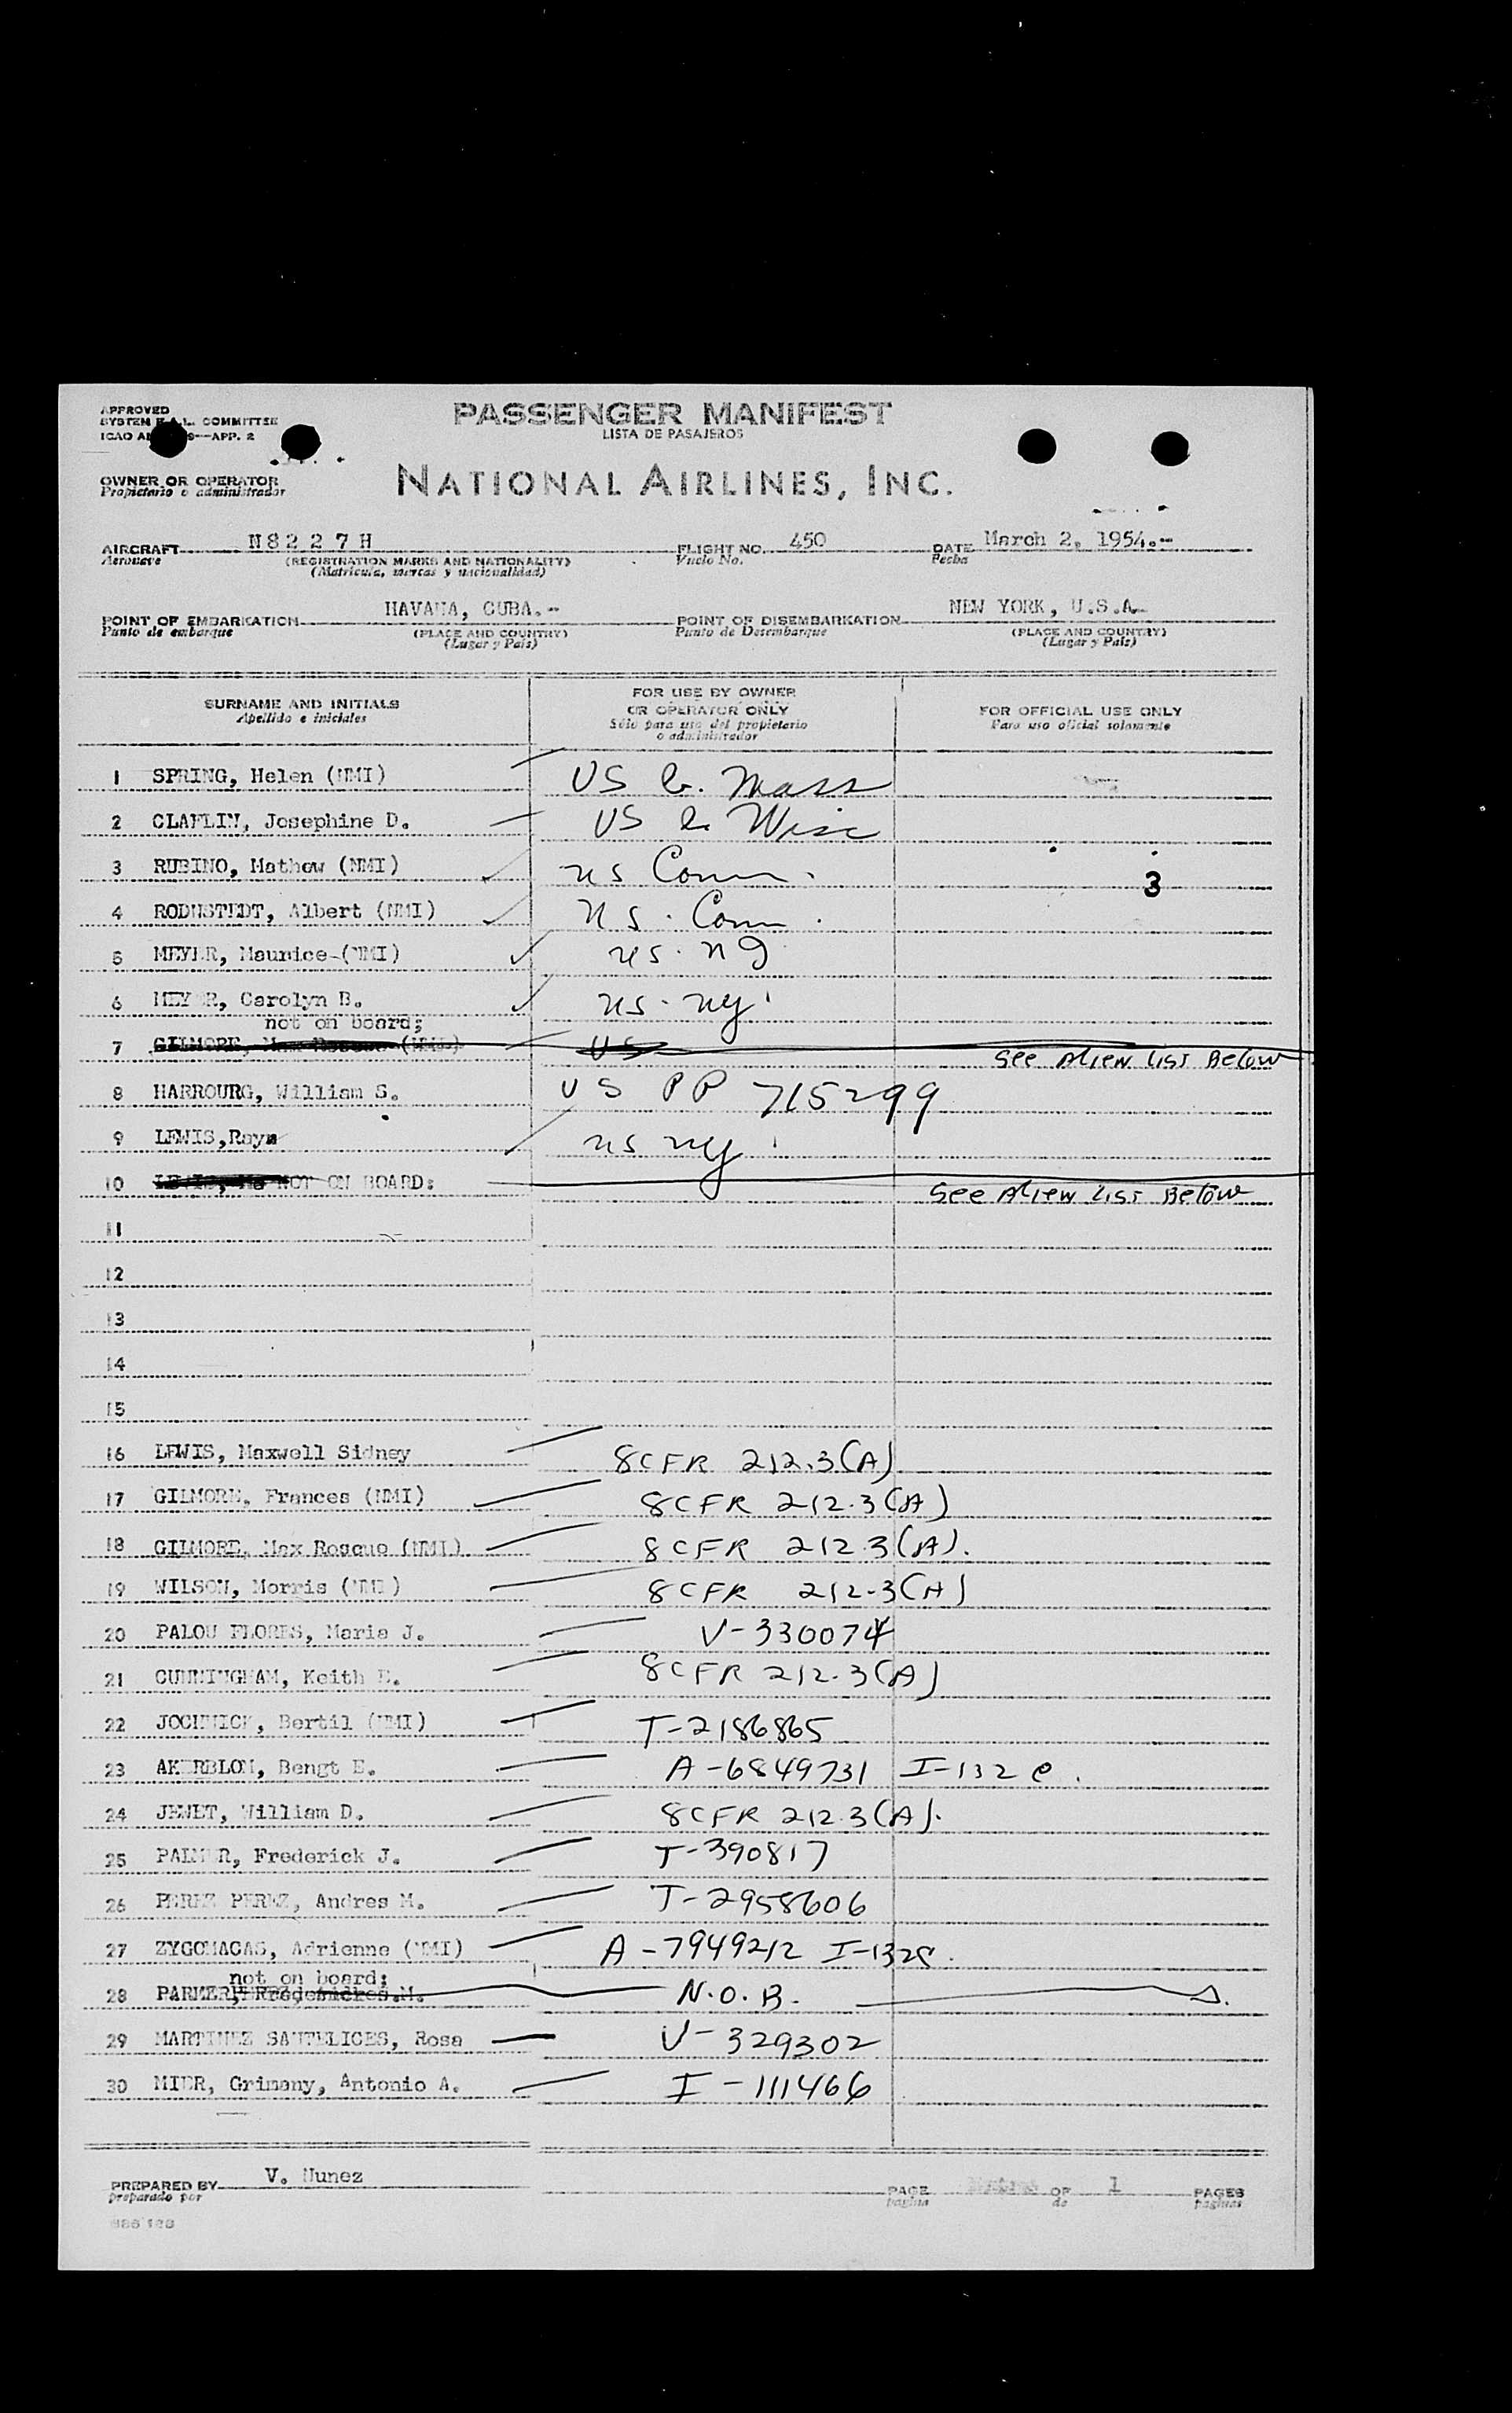 APPROVED
SYSTEM F.A.L. COMMITTEE
ICAO 9—APP. 2
PASSENGER MANIFEST
LISTA DE PASAJEROS
OWNER OR OPERATOR
Propietario o administrador
NATIONAL AIRLINES, INC.
AIRCRAFT N8227H FLIGHT NO. 450 DATE March 2, 1954.-
Aeronave (REGISTRATION MARKS AND NATIONALITY) Vuelo No. Fecha
(Matricula, marcas y nacionalidad)
POINT OF EMBARKATION HAVANA, CUBA.- POINT OF DISEMBARKATION NEW YORK, U.S.A.
Punto de embarque (PLACE AND COUNTRY) Punto de Desembarque (PLACE AND COUNTRY)
(Lugar y Pais) (Lugar y Pais)
SURNAME AND INITIALS
Apellido e iniciales
FOR USE BY OWNER
OR OPERATOR ONLY
Sólo para uso del propietario
o administrador
FOR OFFICIAL USE ONLY
Para uso oficial solamente
1 SPRING, Helen (NMI) US b. Mass
2 CLAFLIN, Josephine D. US b. Wisc
3 RUBINO, Mathew (NMI) US Conn. 3
4 RODNSTEDT, Albert (NMI) US. Conn.
5 MEYER, Maurice (NMI) US. NJ
6 MEYER, Carolyn B. US. NY
not on board;
7 GILMORE, Max Roscue (NMI) US See Alien List Below
8 HARBOURG, William S. US PP 715299
9 LEWIS, Raym US NY
10 NOT ON BOARD: See Alien List Below
11
12
13
14
15
16 LEWIS, Maxwell Sidney 8CFR 212.3(A)
17 GILMORE, Frances (NMI) 8CFR 212.3(A)
18 GILMORE, Max Roscue (NMI) 8CFR 212.3(A).
19 WILSON, Morris (NMI) 8CFR 212.3(A)
20 PALOU FLORES, Maria J. V-330074
21 CUNNINGHAM, Keith E. 8CFR 212.3(A)
22 JOCHNICK, Bertil (NMI) T-2186865
23 AKERBLOM, Bengt E. A-6849731 I-132 e.
24 JEWET, William D. 8CFR 212.3(A).
25 PALMER, Frederick J. T-390817
26 PEREZ PEREZ, Andres M. T-2958606
27 ZYGOMACAS, Adrienne (NMI) A-7949212 I-132c.
not on board;
28 N.O.B.
29 MARTINEZ SANTELICES, Rosa V-329302
30 MIER, Grimany, Antonio A. I-111466
PREPARED BY V. Nunez PAGE OF 1 PAGES
preparado por pagina de paginas